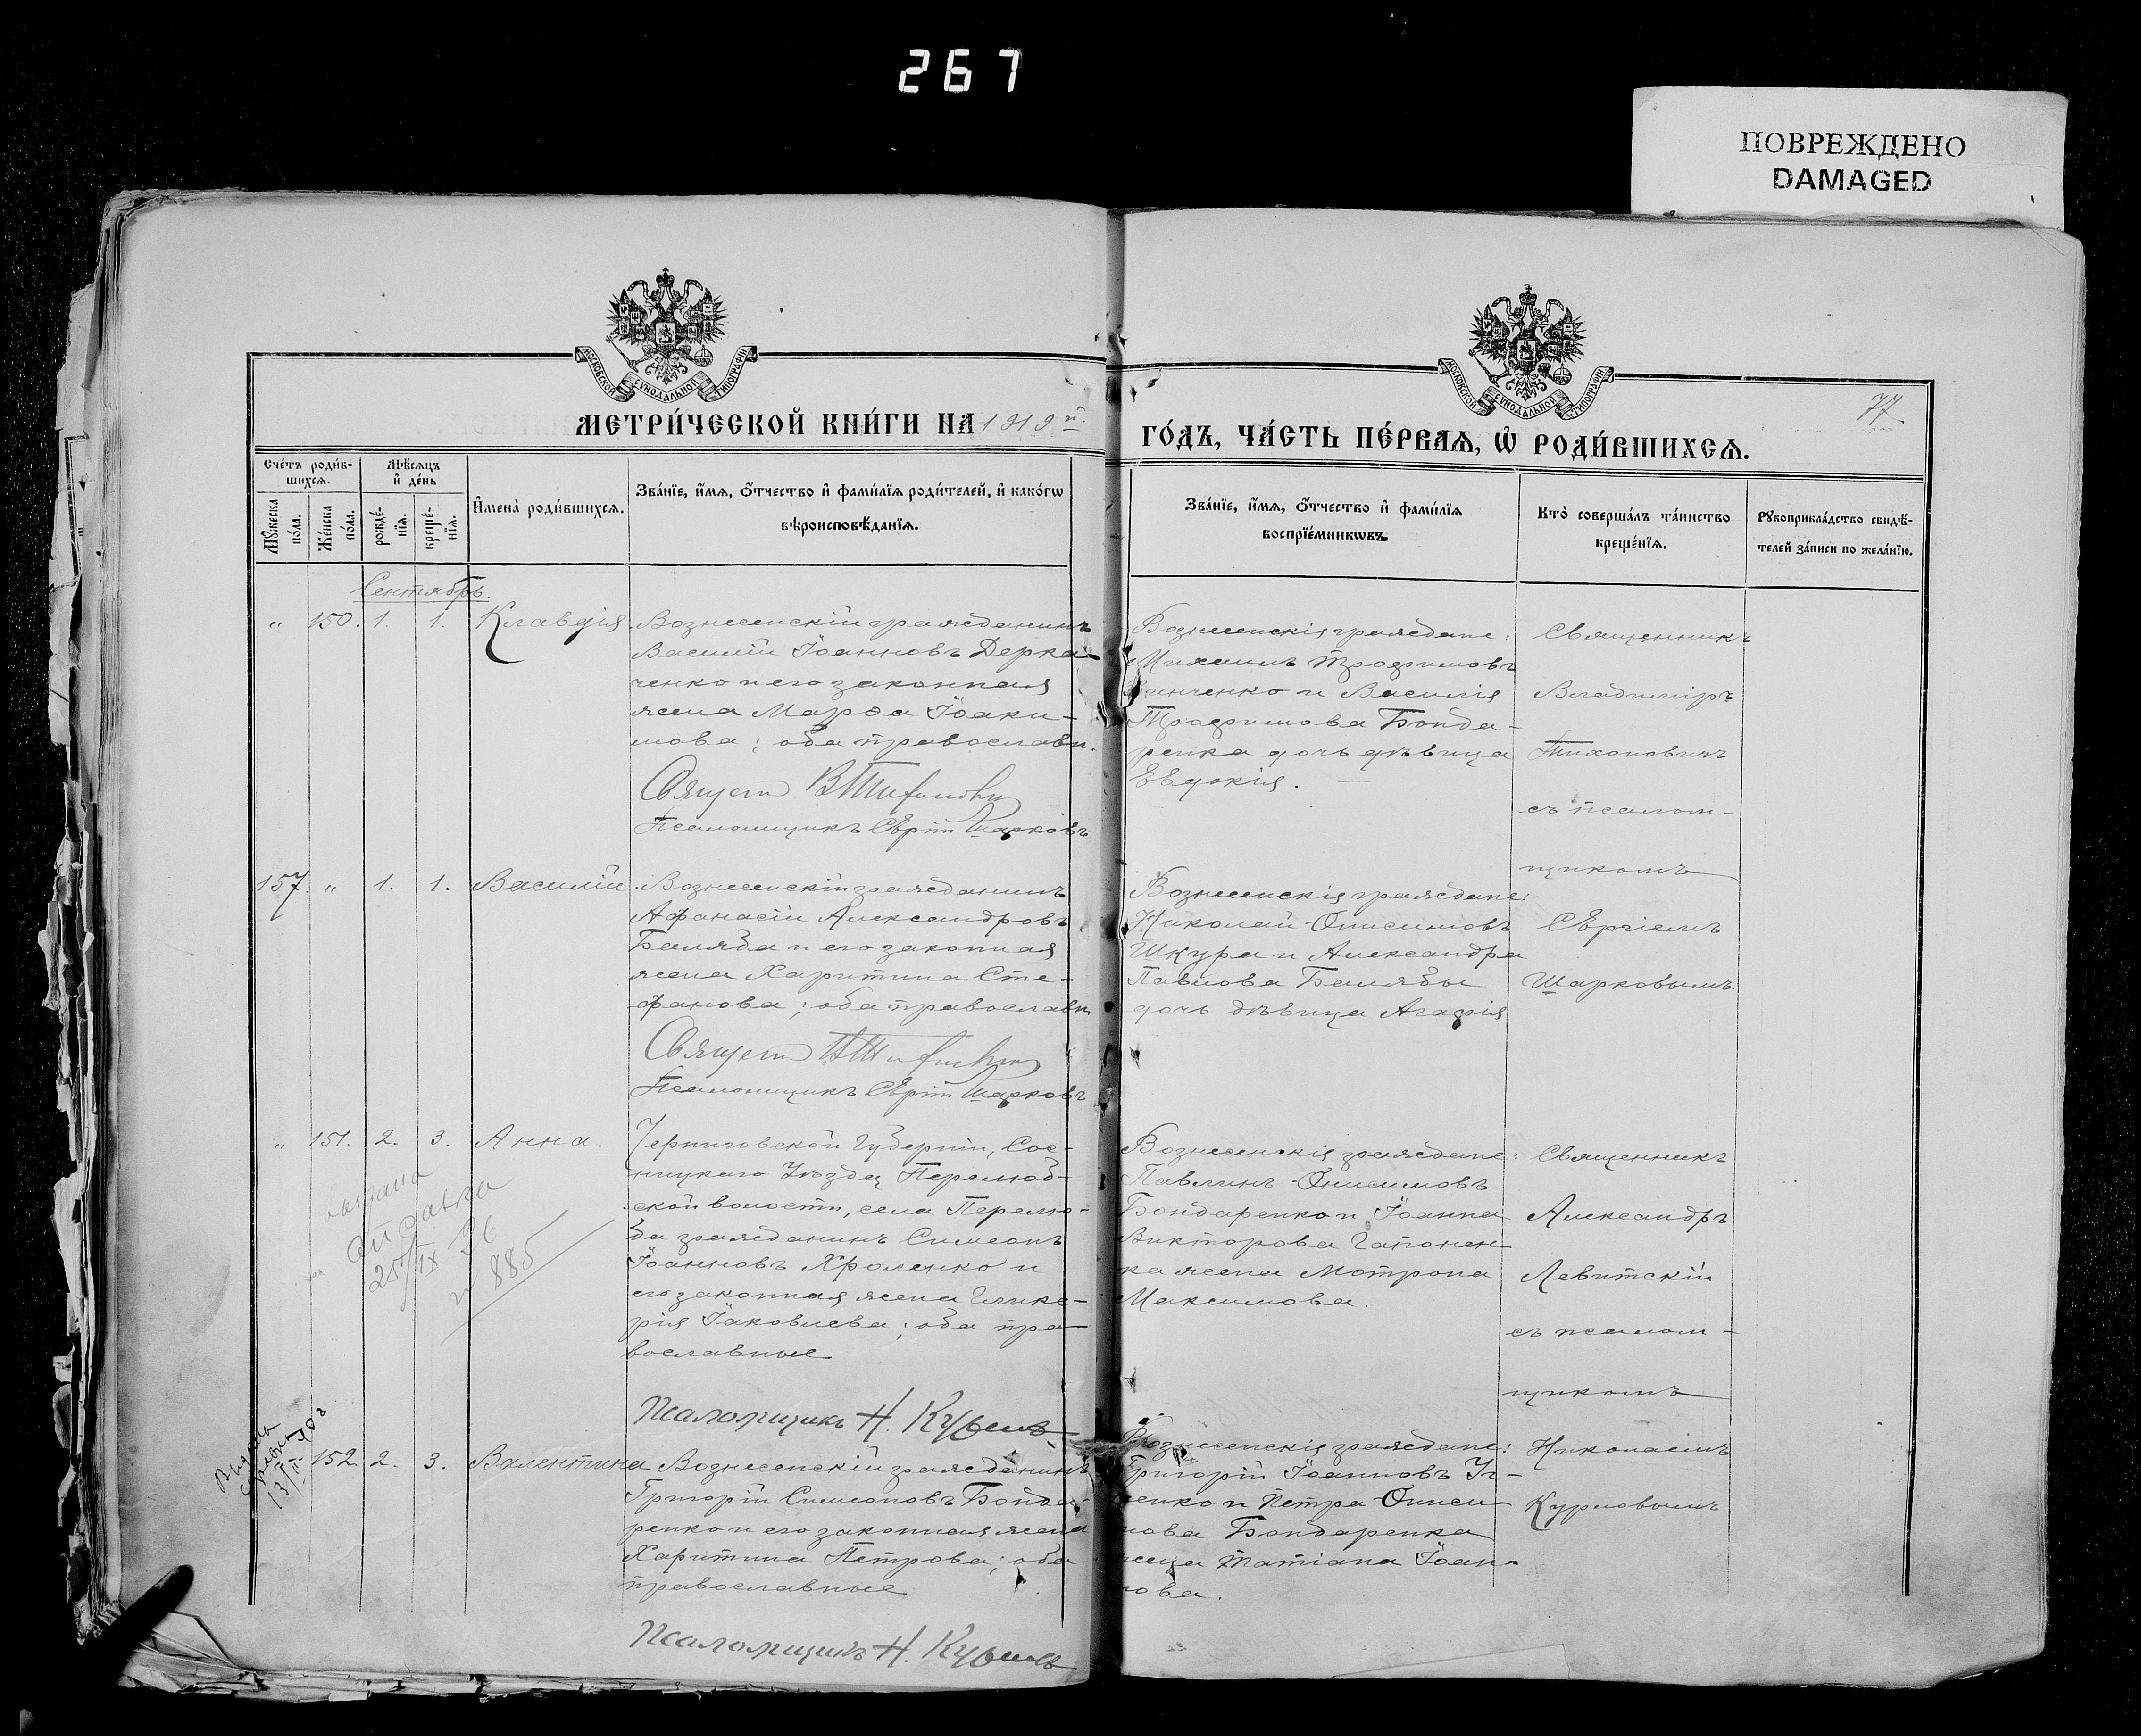 267
ПОВРЕЖДЕНО
DAMAGED
МОСКОВСКОЙ СУНОДАЛЬНОЙ ТИПОГРАФІИ
МОСКОВСКОЙ СУНОДАЛЬНОЙ ТИПОГРАФІИ
МЕТРИ́ЧЕСКОЙ КНИ́ГИ НА 1919 г.
ГО́ДЪ, ЧА́СТЬ ПЕ́РВАѦ, Ѡ҆ РОДИ́ВШИХСѦ.
77
Сче́тъ роди́в-
шихсѧ.
Мѣ́сѧцъ
и҆ де́нь
Мꙋ́жеска
по́ла.
Же́нска
по́ла.
рожде́-
нїѧ.
креще́-
нїѧ.
И҆мена̀ роди́вшихсѧ.
Зва́нїе, и҆́мѧ, ѻ҆́тчество и҆ фами́лїѧ роди́телей, и҆ како́гѡ
вѣроисповѣ́данїѧ.
Зва́нїе, и҆́мѧ, ѻ҆́тчество и҆ фами́лїѧ
воспрїе́мникѡвъ.
Кто̀ соверша́лъ та́инство
креще́нїѧ.
Рꙋкоприкла́дство свидѣ́-
телей за́писи по жела́нїю.
Сентябрь.
" 150. 1. 1. Клавдія.
Вознесенскій гражданинъ
Василій Іоанновъ Дерка-
ченко и его законная
жена Марѳа Іоаки-
мова; оба православн.
Священ В Тиханович
Псаломщикъ Сергій Шарковъ
Вознесенскія граждане:
Михаилъ Трофимовъ
Винченко и Василія
Трофимова Бонда-
ренка дочь дѣвица
Евдокія.
Священникъ
Владиміръ
Тихоновичъ
съ псалом-
щикомъ
Сергіемъ
Шарковымъ.
157. " 1. 1. Василій.
Вознесенскій гражданинъ
Афанасій Александровъ
Беляба и его законная
жена Харитина Сте-
фанова; оба православн
Священ В Тиханович
Псаломщикъ Сергій Шарковъ
Вознесенскія граждане:
Николай Онисимовъ
Шкура и Александра
Павлова Белябы
дочь дѣвица Агафія
" 151. 2. 3. Анна.
Черниговской губерніи, Сос-
ницкаго Уѣзда, Перелюб-
ской волости, села Перелю-
ба гражданинъ Симеонъ
Іоанновъ Хроленко и
его законная жена Глике-
рія Іаковлева; оба пра-
вославные
Псаломщикъ Н. Курловъ
Вознесенскія граждане:
Павлинъ Онисимовъ
Бондаренко и Іоанна
Викторова Гапонен
ка жена Мотрона
Максимова.
Священникъ
Александръ
Левитскій
съ псалом-
щикомъ
Николаемъ
Курловымъ
справка
25/IX 36
№ 885
Выдана
справка
13/II 40 г
152. 2. 3. Валентина
Вознесенскій гражданинъ
Григорій Симеоновъ Бонда-
ренко и его законная жена
Харитина Петрова; оба
православные
Псаломщикъ Н. Курловъ
Вознесенскія граждане:
Григорій Іоанновъ
и Петра Ониси-
мова Бондаренка
жена Татіана Іоан-
нова.